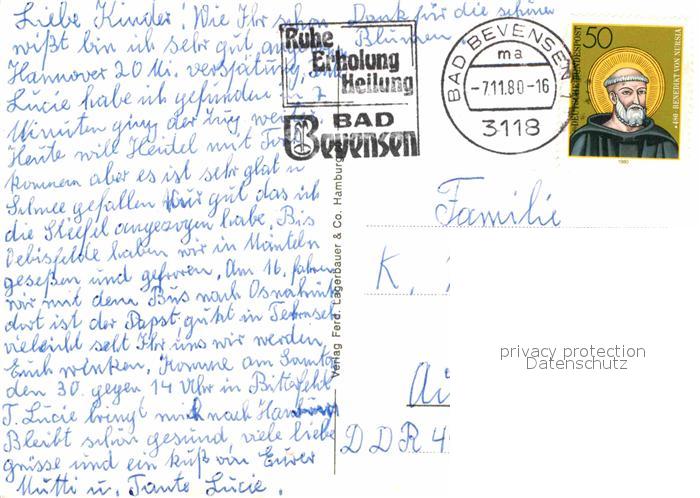 Liebe Kinder! Wie Ihr schon
wißt bin ich sehr gut
Hannover 20 Mi. verspätung,
Lucie habe ich gefunden in 7
Minuten ging der Zug
Heute will Heidel mit
kommen aber es ist sehr glatt u
Schnee gefallen Nur gut das ich
die Stiefel angezogen habe. Bis
Oebisfelde haben wir in Mänteln
geseßen und gefroren. Am 16. fahren
wir mit dem Bus nach Osnabrück
dort ist der Papst, guckt in Fernseh
vieleicht seht Ihr uns wir werden
Euch winken. Komme am Samta
den 30. gegen 14 Uhr in Bitterfeld
T. Lucie bringt mich nach Hannover
Bleibt schön gesund, viele liebe
grüsse und ein Kuß von Eurer
Mutti u. Tante Lucie.
Dank für die schönen
Blumen
Ruhe
Erholung
Heilung
BAD
Bevensen
BAD BEVENSEN 1
ma
-7.11.80-16
3118
DEUTSCHE BUNDESPOST
50
*480 BENEDIKT VON NURSIA
1980
Verlag Ferd. Lagerbauer & Co. Hamburg
Familie
K.
DDR 4
privacy protection
Datenschutz